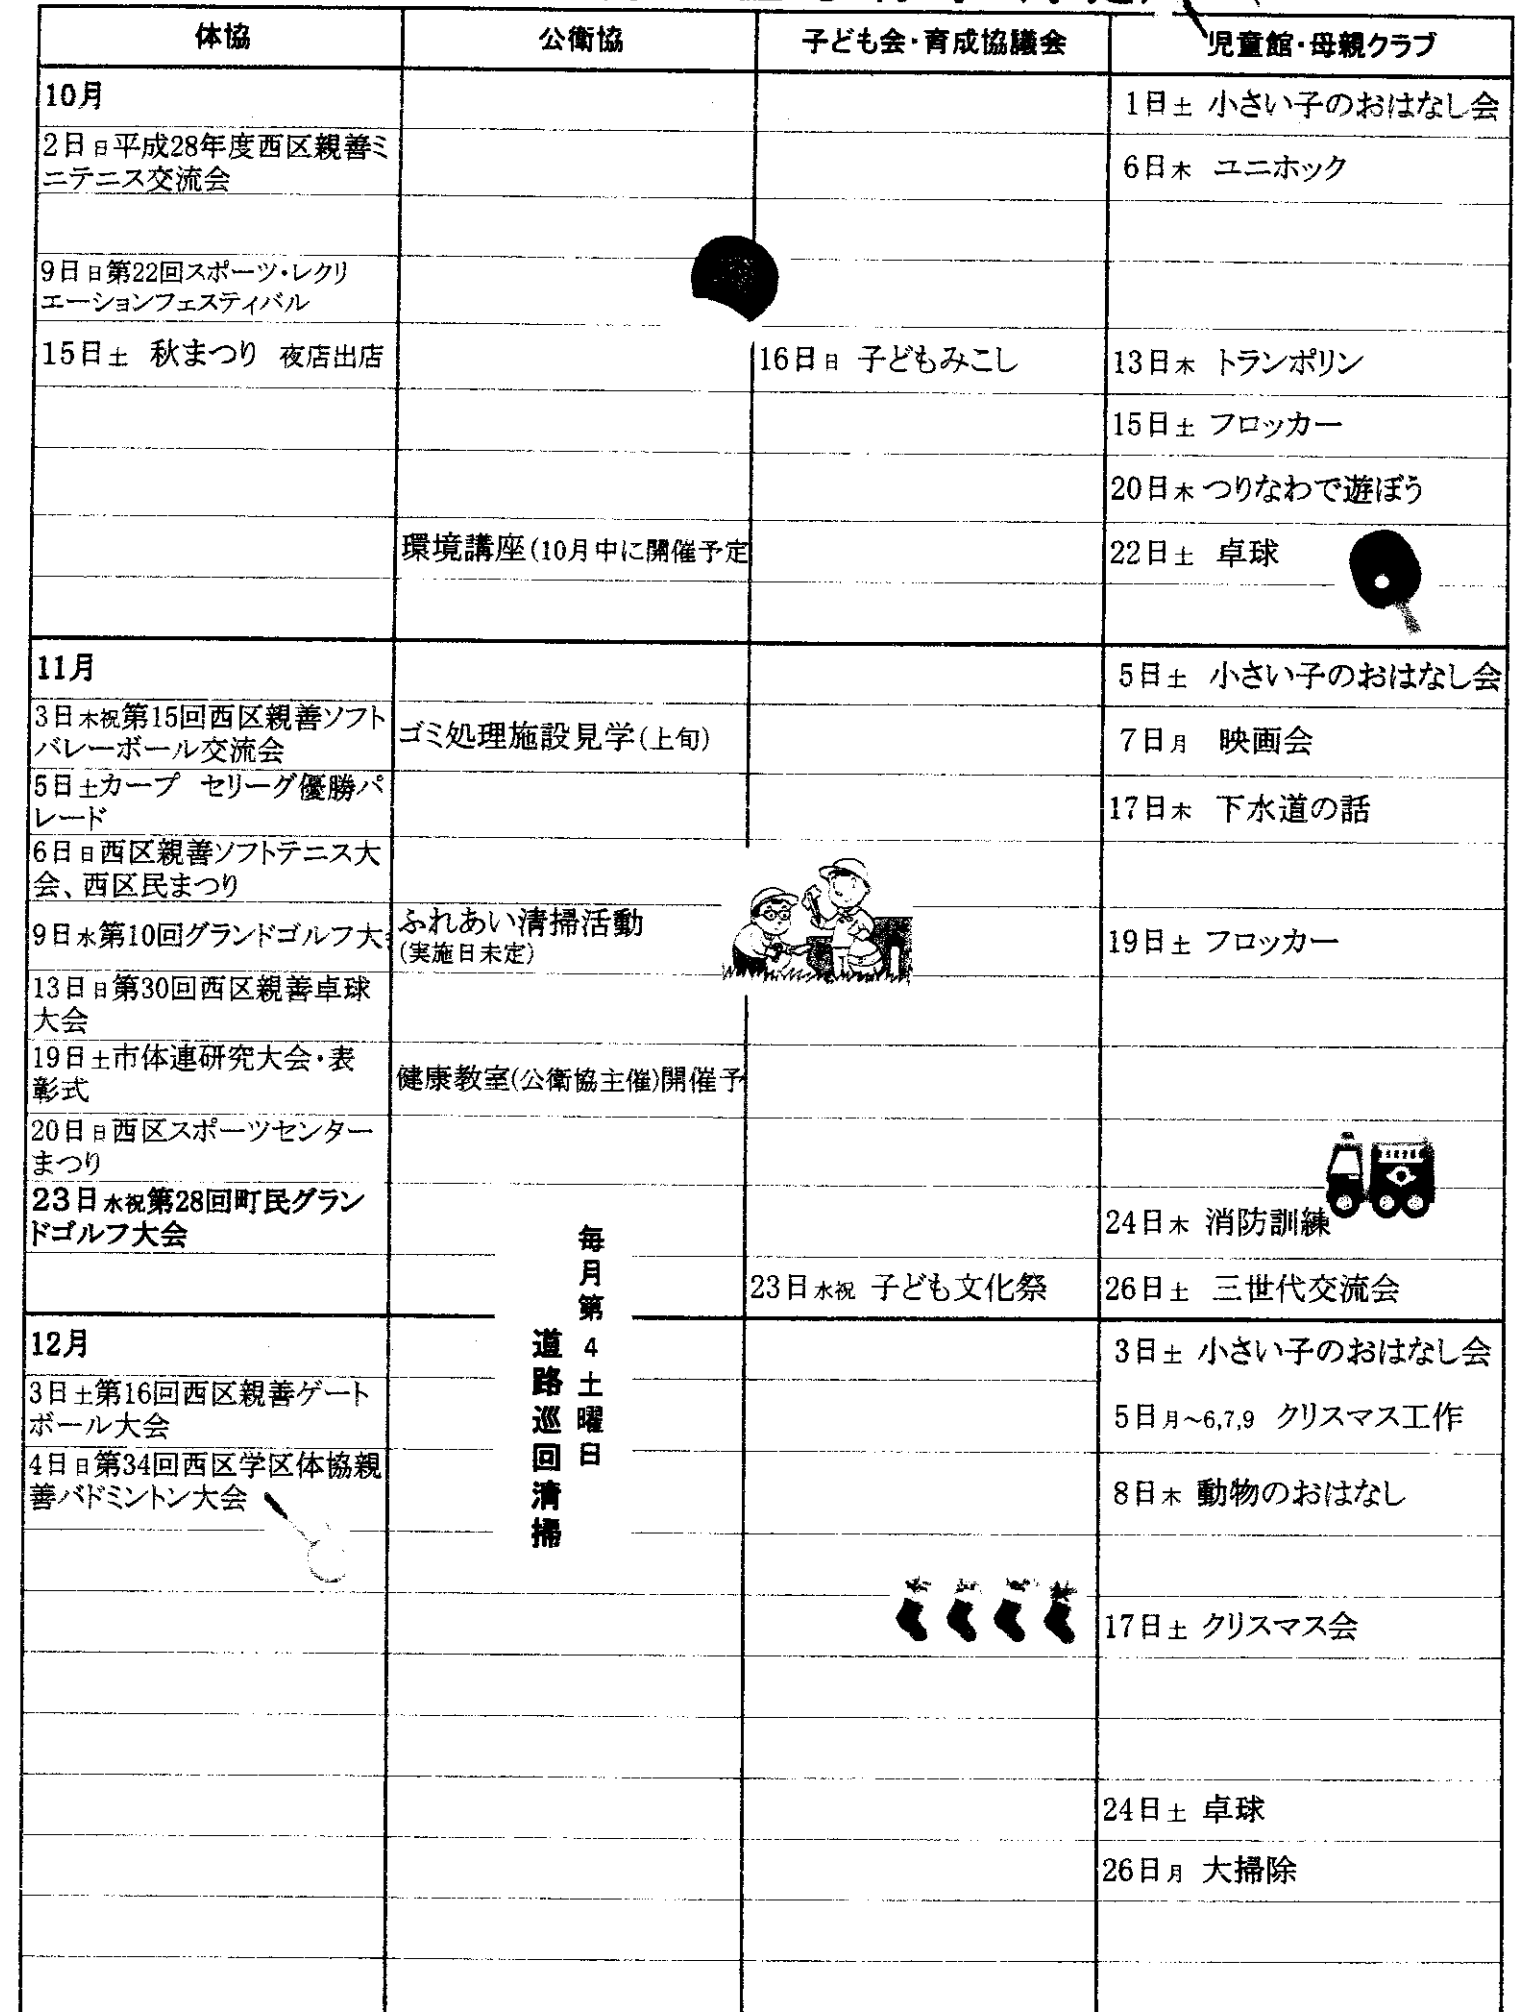 体協 公衛協 子ども会・育成協議会 児童館・母親クラブ
10月
1日土 小さい子のおはなし会
2日日平成28年度西区親善ミ
ニテニス交流会
6日木 ユニホック
9日日第22回スポーツ・レクリ
エーションフェスティバル
15日土 秋まつり 夜店出店
16日日 子どもみこし
13日木 トランポリン
15日土 フロッカー
20日木 つりなわで遊ぼう
環境講座(10月中に開催予定
22日土 卓球
11月
5日土 小さい子のおはなし会
3日木祝第15回西区親善ソフト
バレーボール交流会
ゴミ処理施設見学(上旬)
7日月 映画会
5日土カープ セリーグ優勝パ
レード
17日木 下水道の話
6日日西区親善ソフトテニス大
会、西区民まつり
9日水第10回グランドゴルフ大
ふれあい清掃活動
(実施日未定)
19日土 フロッカー
13日日第30回西区親善卓球
大会
19日土市体連研究大会・表
彰式
健康教室(公衛協主催)開催予
20日日西区スポーツセンター
まつり
23日水祝第28回町民グラン
ドゴルフ大会
24日木 消防訓練
23日水祝 子ども文化祭
26日土 三世代交流会
毎月第4土曜日
道路巡回清掃
12月
3日土 小さい子のおはなし会
3日土第16回西区親善ゲート
ボール大会
5日月～6,7,9 クリスマス工作
4日日第34回西区学区体協親
善バドミントン大会
8日木 動物のおはなし
17日土 クリスマス会
24日土 卓球
26日月 大掃除